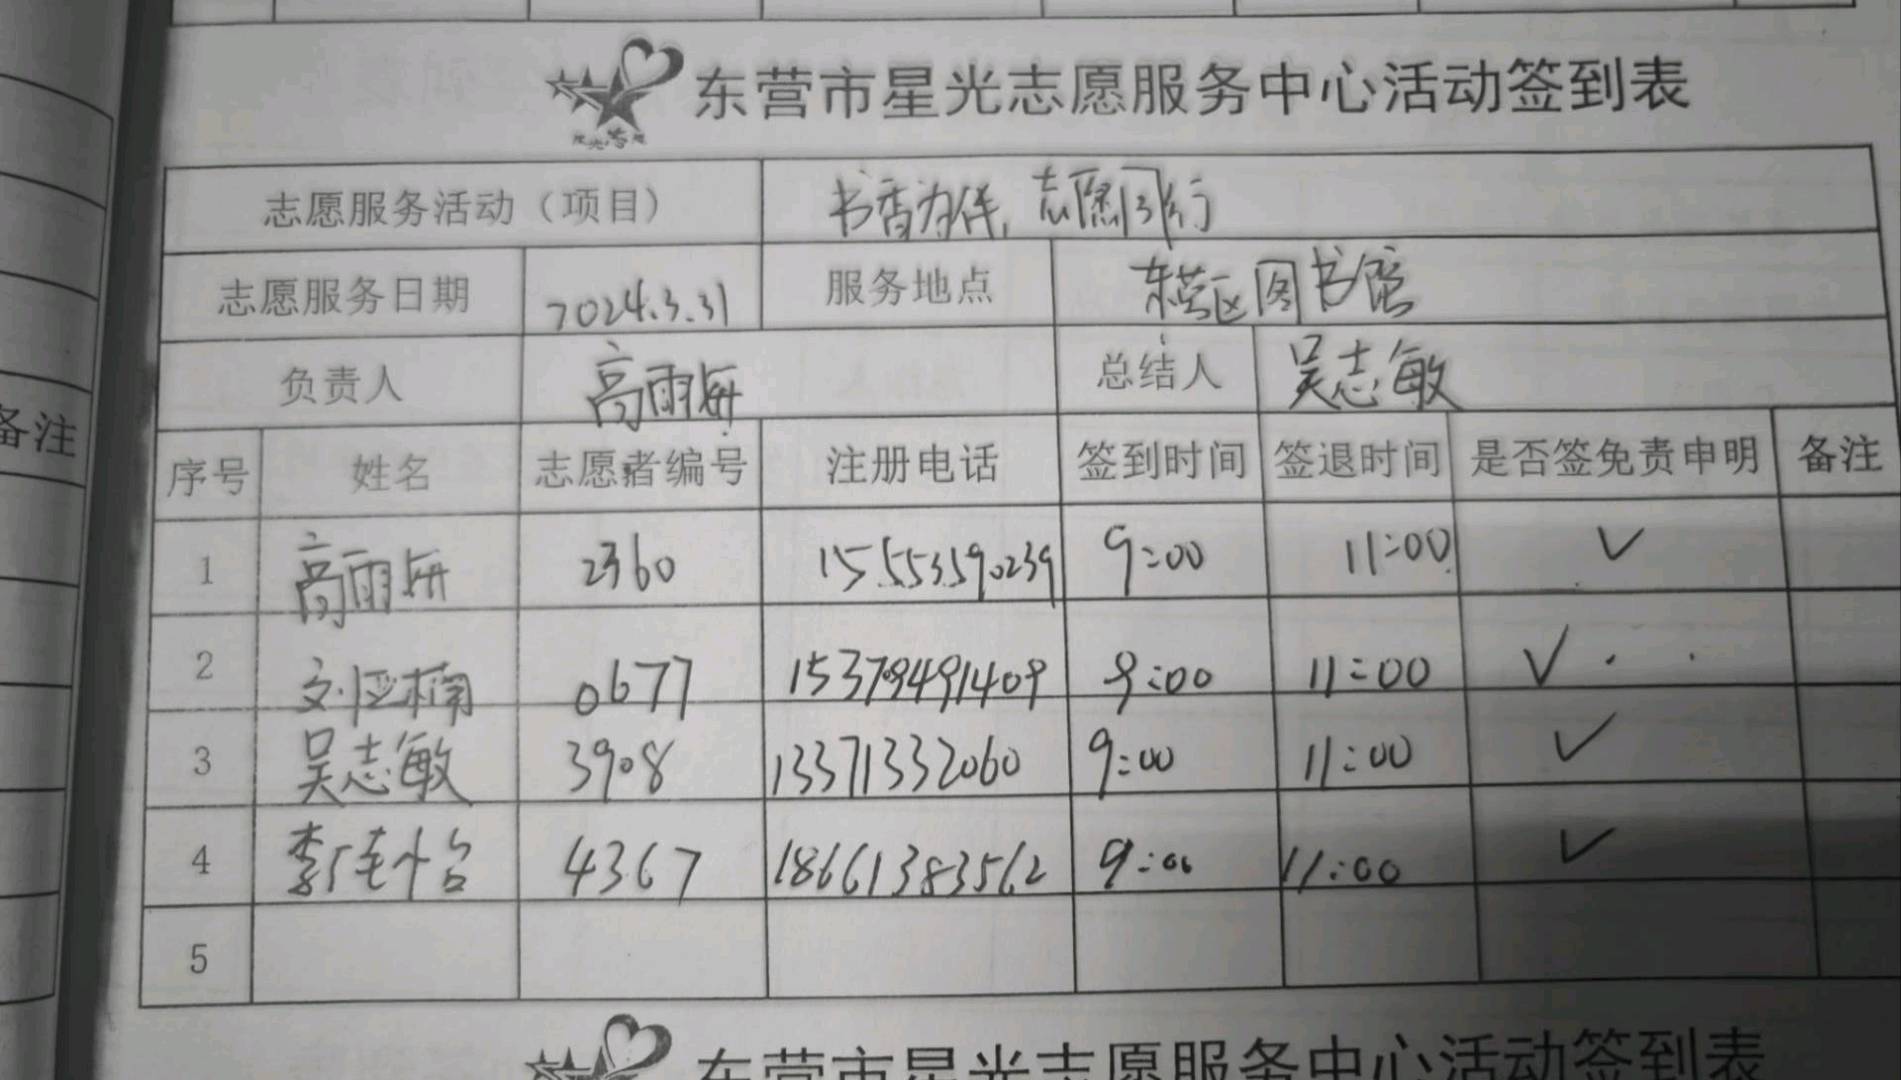 东营市星光志愿服务中心活动签到表
星光志愿
志愿服务活动（项目） 书香为伴，志愿同行
志愿服务日期 2024.3.31 服务地点 东营区图书馆
负责人 高雨妍 总结人 吴志敏
备注
序号 姓名 志愿者编号 注册电话 签到时间 签退时间 是否签免责申明 备注
1 高雨妍 2360 15553590239 9:00 11:00 ✓
2 0677 15379491409 9:00 11:00 ✓
3 吴志敏 3908 13371332060 9:00 11:00 ✓
4 李佳怡 4367 18661383562 9:00 11:00 ✓
5
东营市星光志愿服务中心活动签到表